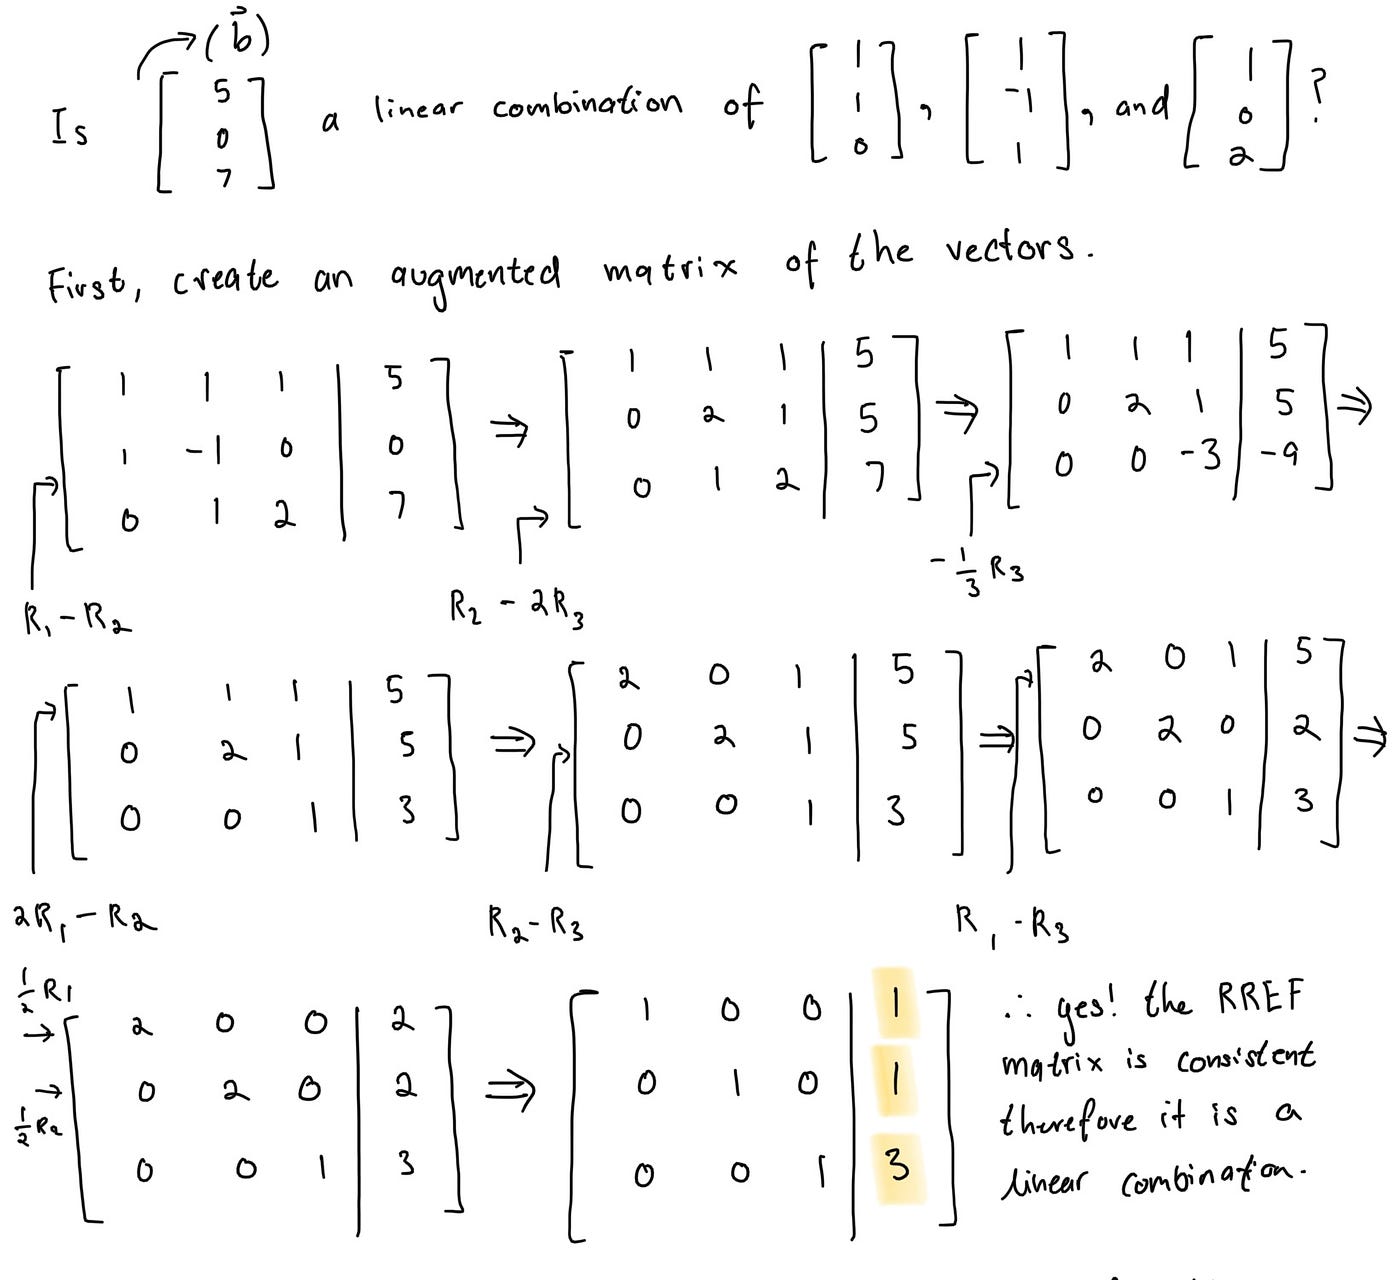 (b⃗)
Is [5 0 7] a linear combination of [1 1 0], [1 -1 1], and [1 0 2]?
First, create an augmented matrix of the vectors.
[1 1 1 | 5] ⇒ [1 1 1 | 5] ⇒ [1 1 1 | 5] ⇒
[1 -1 0 | 0] [0 2 1 | 5] [0 2 1 | 5]
[0 1 2 | 7] [0 1 2 | 7] [0 0 -3 | -9]
R₁ - R₂ R₂ - 2R₃ -1/3 R₃
[1 1 1 | 5] ⇒ [2 0 1 | 5] ⇒ [2 0 1 | 5] ⇒
[0 2 1 | 5] [0 2 1 | 5] [0 2 0 | 2]
[0 0 1 | 3] [0 0 1 | 3] [0 0 1 | 3]
2R₁ - R₂ R₂ - R₃ R₁ - R₃
1/2 R₁ → [2 0 0 | 2] ⇒ [1 0 0 | 1]
1/2 R₂ → [0 2 0 | 2] [0 1 0 | 1]
[0 0 1 | 3] [0 0 1 | 3]
∴ yes! the RREF
matrix is consistent
therefore it is a
linear combination.